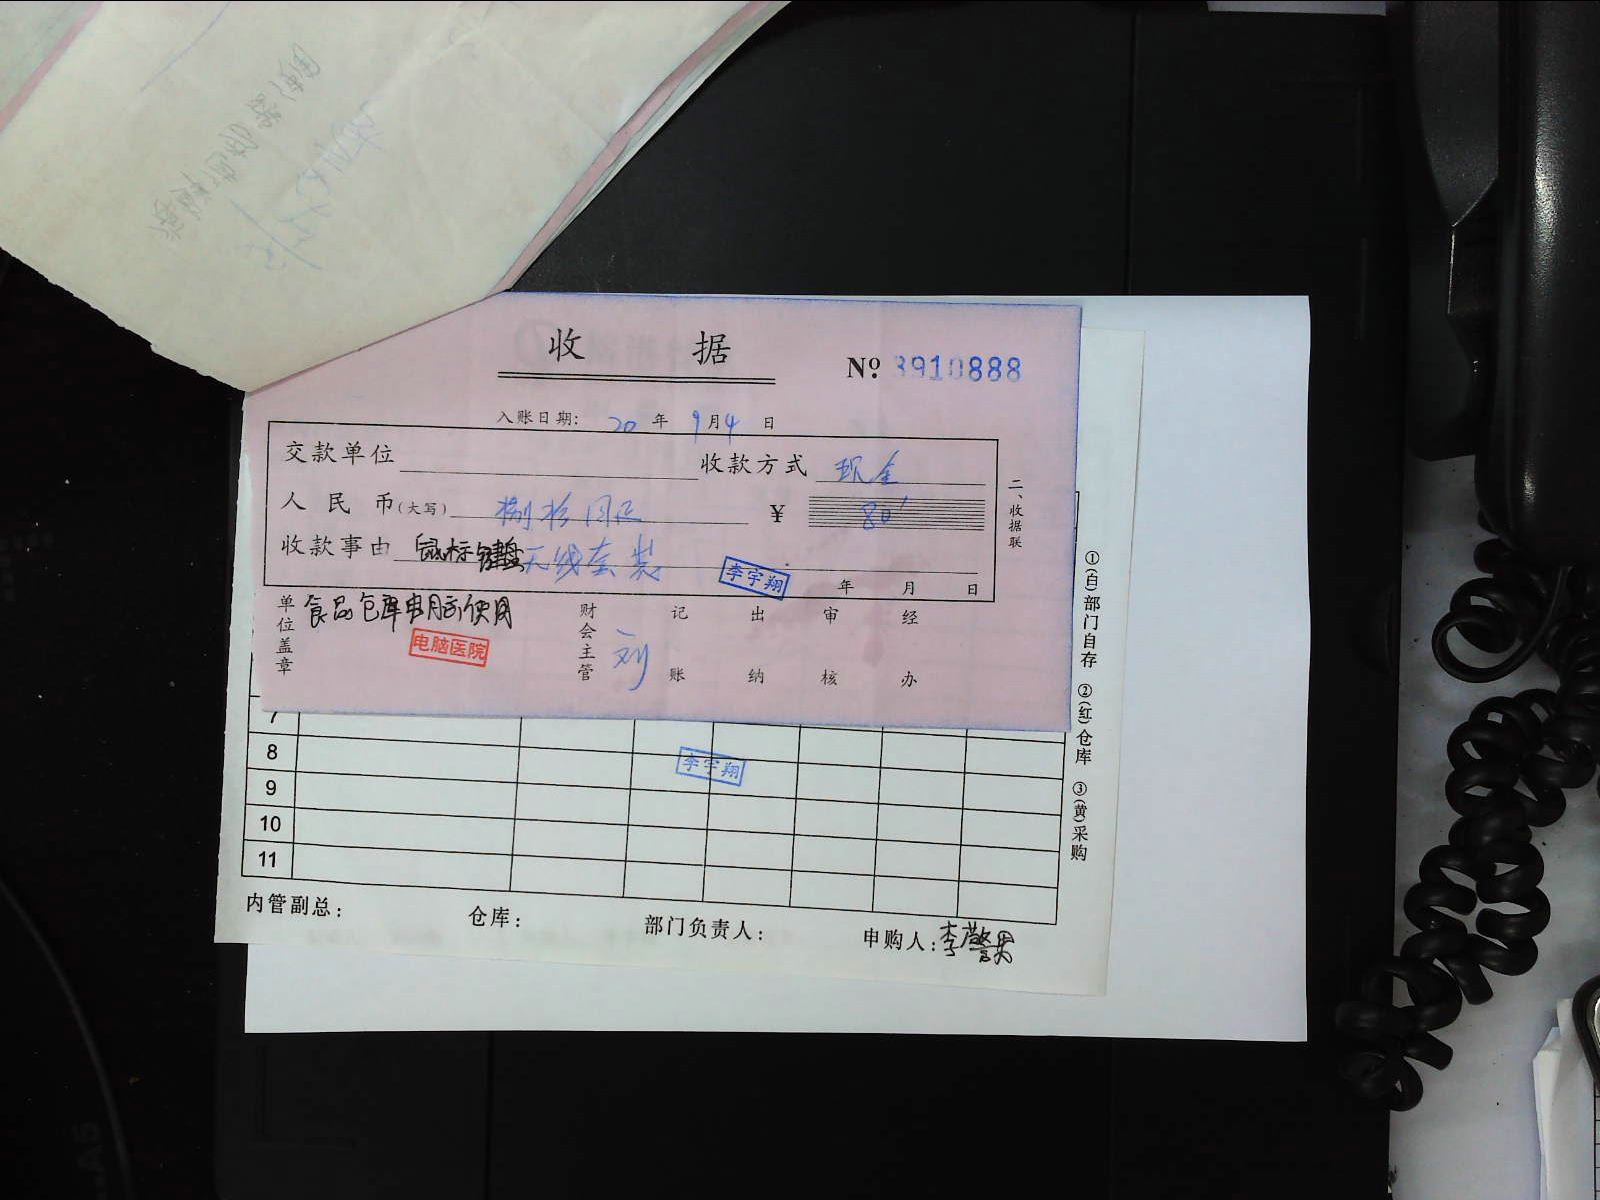 收 据
№ 3910888
入账日期: 20 年 9月4 日
交款单位 收款方式 现金
人民币(大写) 捌拾圆正 ¥ 80
收款事由 鼠标键盘无线套装
李宇翔 年 月 日
二、收据联
单位盖章 食品仓库电脑使用
电脑医院
财会主管 刘 记账 出纳 审核 经办
7
8 李宇翔
9
10
11
①(白)部门自存 ②(红)仓库 ③(黄)采购
内管副总: 仓库: 部门负责人: 申购人:李